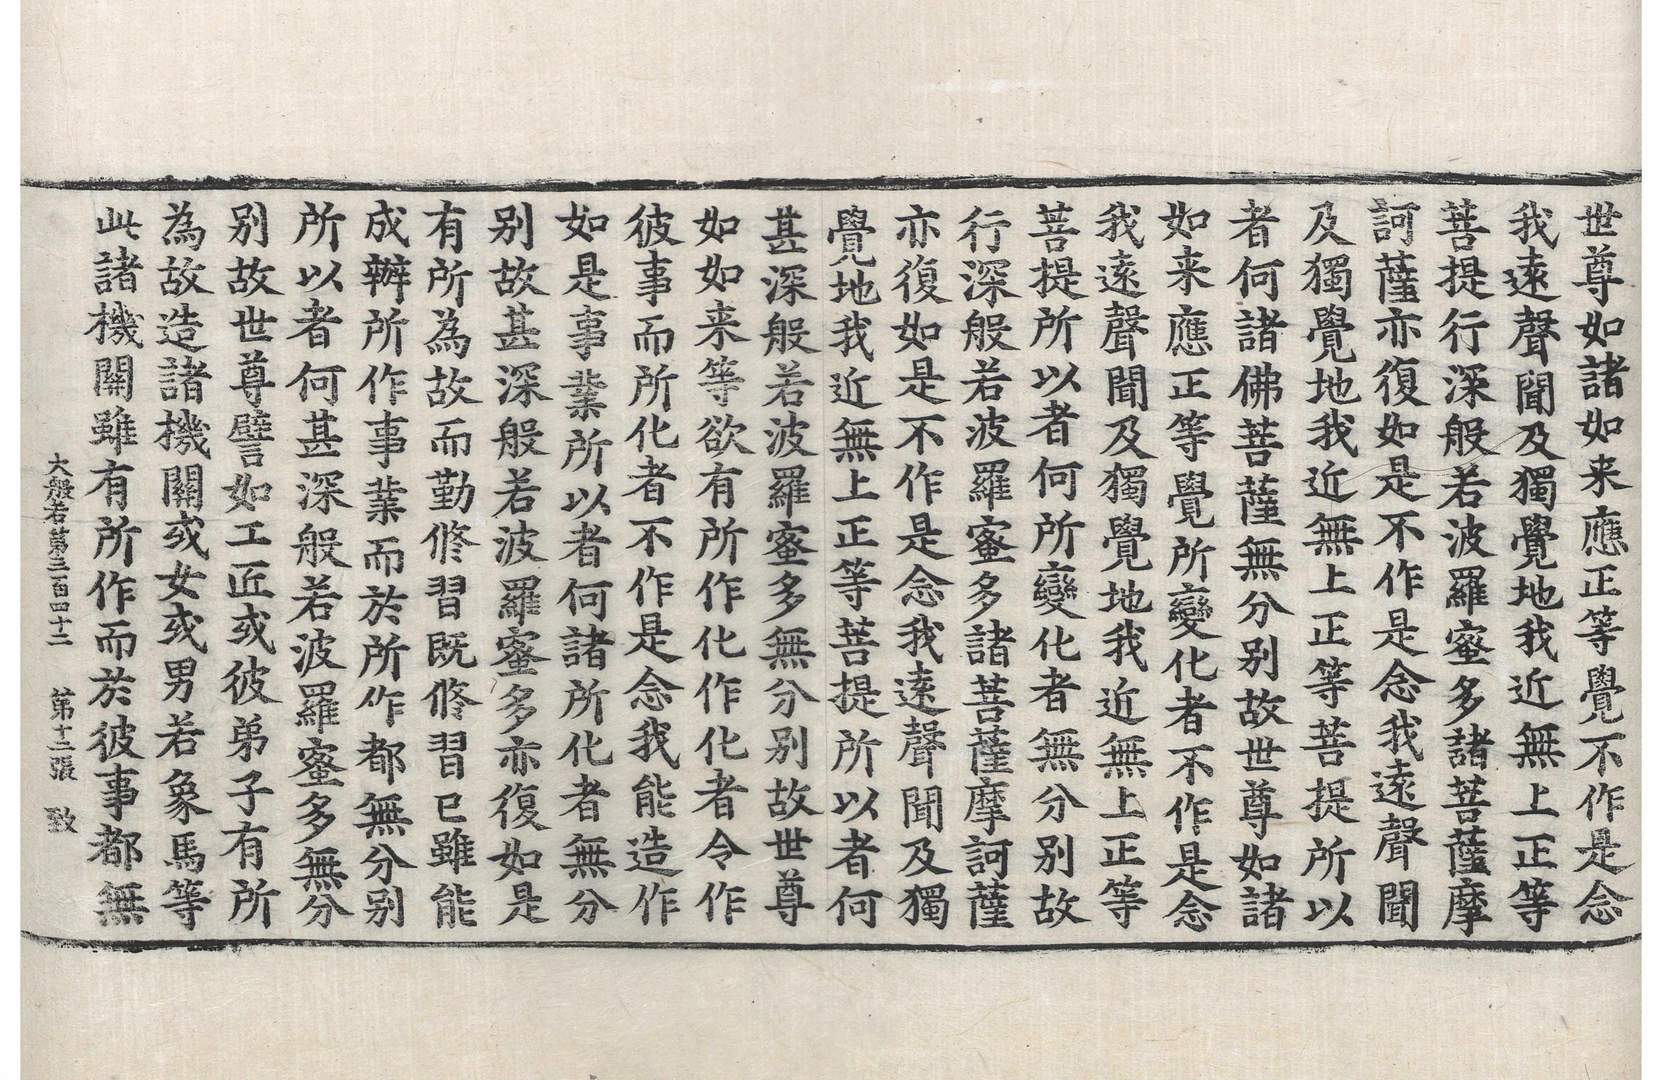 世尊如諸如来應正等覺不作是念
我遠聲聞及獨覺地我近無上正等
菩提行深般若波羅蜜多諸菩薩摩
訶薩亦復如是不作是念我遠聲聞
及獨覺地我近無上正等菩提所以
者何諸佛菩薩無分别故世尊如諸
如来應正等覺所變化者不作是念
我遠聲聞及獨覺地我近無上正等
菩提所以者何所變化者無分别故
行深般若波羅蜜多諸菩薩摩訶薩
亦復如是不作是念我遠聲聞及獨
覺地我近無上正等菩提所以者何
甚深般若波羅蜜多無分别故世尊
如如来等欲有所作化作化者令作
彼事而所化者不作是念我能造作
如是事業所以者何諸所化者無分
别故甚深般若波羅蜜多亦復如是
有所為故而勤修習既修習已雖能
成辦所作事業而於所作都無分别
所以者何甚深般若波羅蜜多無分
别故世尊譬如工匠或彼弟子有所
為故造諸機關或女或男若象馬等
此諸機關雖有所作而於彼事都無
大般若第三百四十二 第十二張 致